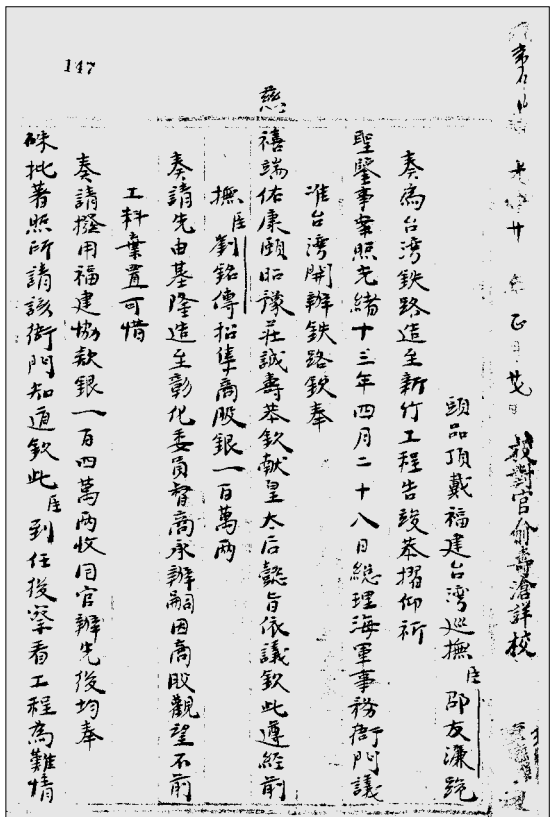 147
光緒廿年正月廿日 校對官俞壽滄詳校
頭品頂戴福建台灣巡撫臣邵友濂跪
奏為台灣鉄路造至新竹工程告竣恭摺仰祈
聖鑒事案照光緒十三年四月二十八日總理海軍事務衙門議
准台灣開辦鉄路欽奉
慈
禧端佑康頤昭豫莊誠壽恭欽獻皇太后懿旨依議欽此遵經前
撫臣劉銘傳招集商股銀一百萬两
奏請先由基隆造至彰化委員督商承辦嗣因商股觀望不前
工料棄置可惜
奏請撥用福建協款銀一百四萬两收回官辦先後均奉
硃批著照所請該衙門知道欽此臣到任後察看工程為難情